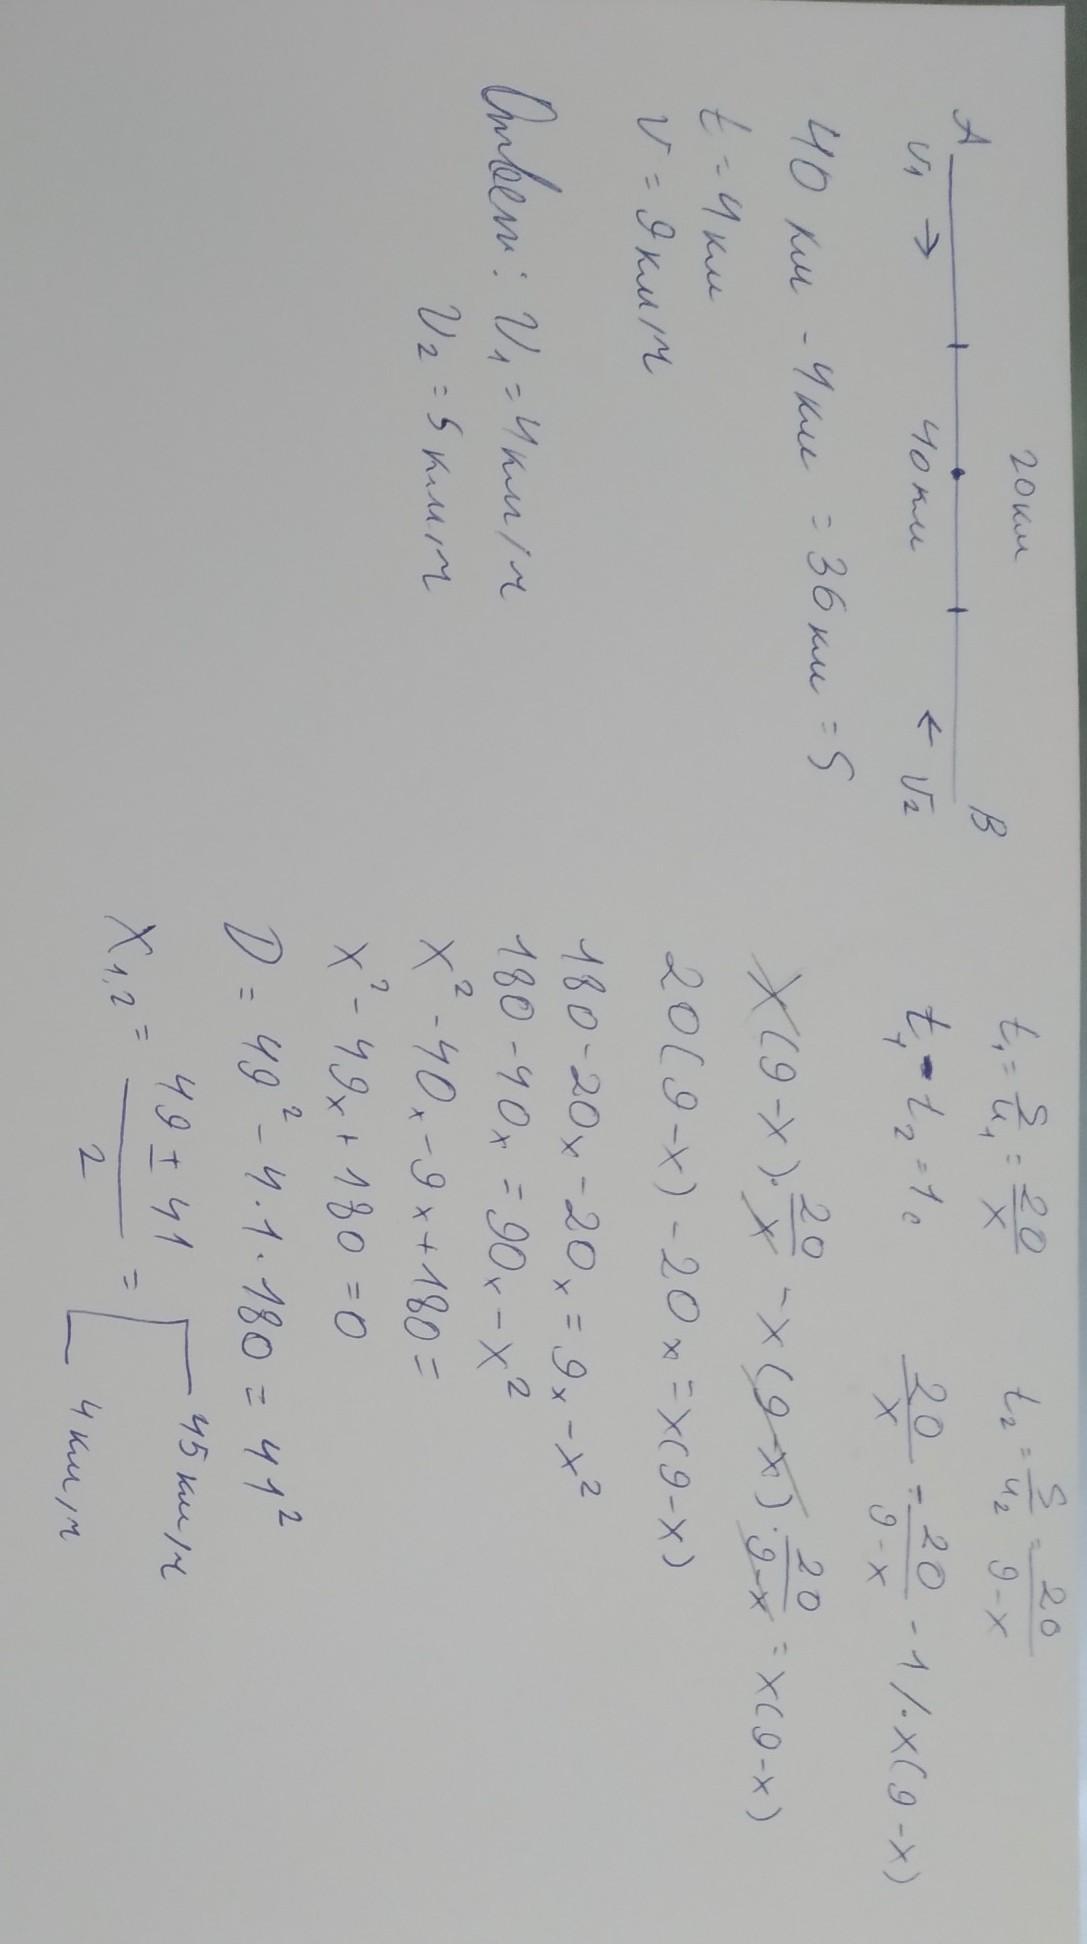 20км
A B
v₁ → 40км ← v₂
40 км - 4км = 36км = S
t = 4км
v = 9км/ч
Ответ: v₁ = 4км/ч
v₂ = 5км/ч
t₁ = S/u₁ = 20/x t₂ = S/u₂ = 20/9-x
t₁ - t₂ = 1. 20/x = 20/9-x - 1 /· x(9-x)
x(9-x) · 20/x - x(9-x) · 20/9-x = x(9-x)
20(9-x) - 20x = x(9-x)
180 - 20x - 20x = 9x - x²
180 - 40x = 90x - x²
x² - 40x - 9x + 180 =
x² - 49x + 180 = 0
D = 49² - 4 · 1 · 180 = 41²
x₁,₂ = 49 ± 41 / 2 = [ 45км/ч
4км/ч